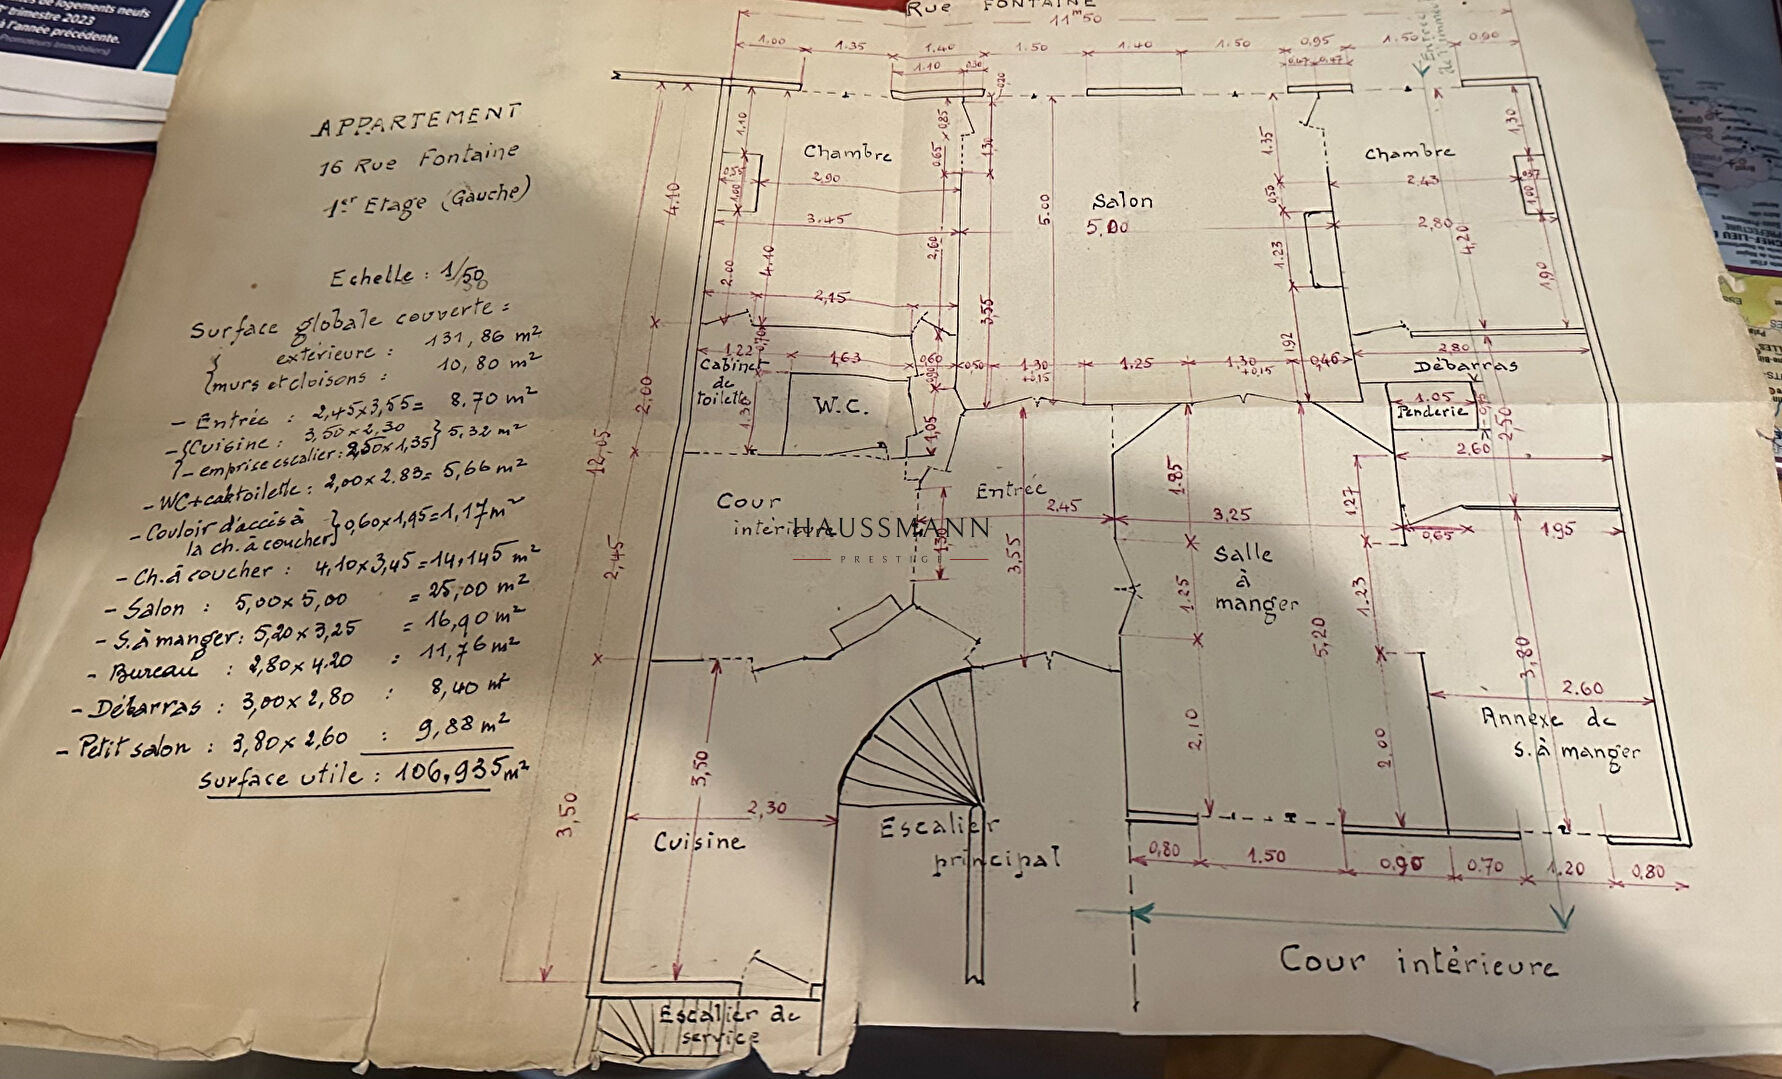 de logements neufs
trimestre 2023
à l'année précédente.
Promoteurs immobiliers)
Rue FONTAINE
11m50
1.00 1.35 1.40 1.50 1.40 1.50 0,95 1.50 0,90
1.10 0,30 0,47 0,47
Entrée
de l'imm
APPARTEMENT
16 Rue Fontaine
1er Etage (Gauche)
Echelle : 1/50
Surface globale couverte =
extérieure : 131,86 m²
murs et cloisons : 10,80 m²
- Entrée : 2,45x3,55= 8.70 m²
- Cuisine : 3,50x2,30
- emprise escalier: 2,50x1,35 } 5,32 m²
- WC+cab toilette : 2,00x2.83= 5,66 m²
- Couloir d'accès à
la ch. à coucher } 0,60x1,95=1,17 m²
- Ch. à coucher : 4,10x3,45=14,145 m²
- Salon : 5,00x5,00 = 25,00 m²
- S. à manger: 5,20x3,25 = 16,90 m²
- Bureau : 2,80x4.20 : 11,76 m²
- Débarras : 3,00x2,80 : 8,40 m²
- Petit salon : 3,80x2,60 : 9,88 m²
Surface utile : 106,935 m²
Chambre
2.90
3.45
1.10
4.10
2.00
4.10
2,15
0.85
0.65
2,60
1.30
3,55
0,20
5.00
Salon
5.00
1.35
0,50
1.23
1.92
Chambre
2.43
2,80
4,20
1,30
1,00
0,37
1,90
1.22
1,63
0,60
0,50
1.30
+0,15
1.25
1.30
+0,15
0,46
2.80
Débarras
Cabinet
de
toilette
0,70
1.30
W.C.
1,05
1.05
Penderie
2,50
2.60
2.00
12,05
2,45
3,50
Cour
intérieure
Entrée
2.45
1.30
3.55
HAUSSMANN
PRESTIGE
1.85
3,25
1.27
0,65
1.95
Salle
à
manger
1.25
1.23
5,20
3,80
2.10
2,00
2.60
Annexe de
S. à manger
3,50
2,30
Cuisine
Escalier
principal
0,80 1.50 0.90 0.70 1.20 0,80
Cour intérieure
Escalier de
service